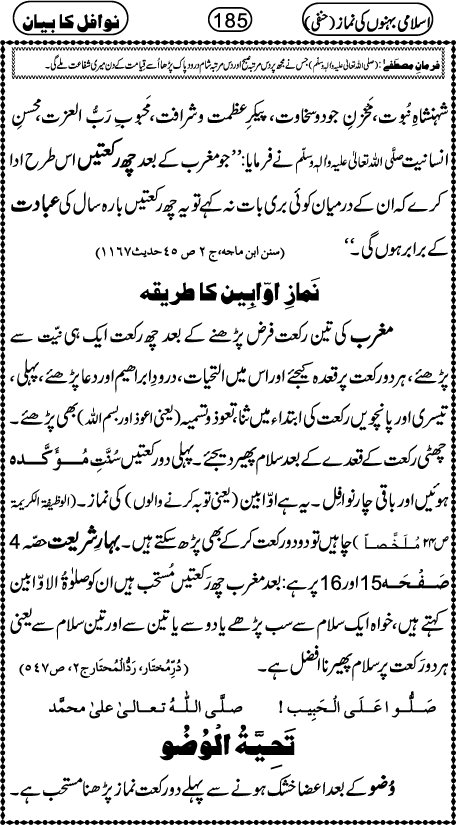 اسلامی بہنوں کی نماز (حنفی) 185 نوافل کا بیان
فرمانِ مصطفٰے: (صلی اللہ تعالیٰ علیہ والہ وسلم) جس نے مجھ پر دس مرتبہ صبح اور دس مرتبہ شام درود پاک پڑھا اُسے قیامت کے دن میری شفاعت ملے گی۔
شہنشاہِ نُبوت، مَخزنِ جودو سخاوت، پیکرِ عظمت و شرافت، محبوبِ ربُّ العزت، محسنِ
انسانیت صلَّی اللہ تعالیٰ علیہ والہٖ وسلّم نے فرمایا: ”جو مغرب کے بعد چھ رکعتیں اس طرح ادا
کرے کہ ان کے درمیان کوئی بری بات نہ کہے تو یہ چھ رکعتیں بارہ سال کی عبادت
کے برابر ہوں گی۔“ (سنن ابن ماجہ، ج ۲ ص ٤٥ حدیث ١١٦٧)
نَمازِ اوّابین کا طریقہ
مغرب کی تین رکعت فرض پڑھنے کے بعد چھ رکعت ایک ہی نیّت سے
پڑھئے، ہر دو رکعت پر قعدہ کیجئے اور اس میں التحیات، درودِ ابراہیم اور دعا پڑھئے، پہلی،
تیسری اور پانچویں رکعت کی ابتداء میں ثنا، تعوذ و تسمیہ (یعنی اعوذ اور بسم اللہ) بھی پڑھئے۔
چھٹی رکعت کے قعدے کے بعد سلام پھیر دیجئے۔ پہلی دو رکعتیں سُنّتِ مُؤَکَّدہ
ہوئیں اور باقی چار نوافل۔ یہ ہے اوّابین (یعنی توبہ کرنے والوں) کی نماز۔ (الوظیفۃ الکریمۃ
ص۲۴ مُلَخَّصاً) چاہیں تو دو دو رکعت کر کے بھی پڑھ سکتے ہیں۔ بہارِ شریعت حصّہ 4
صَفْحَہ 15 اور 16 پر ہے: بعدِ مغرب چھ رکعتیں مُستحب ہیں ان کو صلوٰۃُ الاوّابین
کہتے ہیں، خواہ ایک سلام سے سب پڑھے یا دو سے یا تین سے اور تین سلام سے یعنی
ہر دو رکعت پر سلام پھیرنا افضل ہے۔ (دُرِّمُختار، رَدُّالْمُحتار ج ۲، ص ٥٤٧)
صَلُّوا عَلَی الْحَبِیب! صلَّی اللہُ تعالیٰ علیٰ محمَّد
تَحِیَّۃُ الْوُضُو
وُضو کے بعد اعضا خشک ہونے سے پہلے دو رکعت نماز پڑھنا مستحب ہے۔